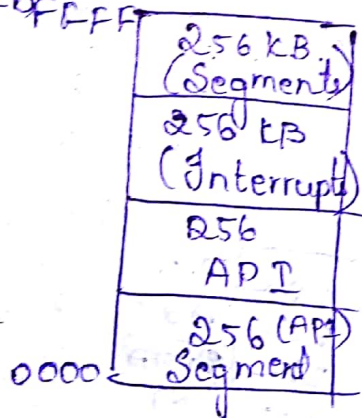 FFFF
256 KB
(Segment)
256 KB
(Interrupt)
256
API
256 (API)
Segment
0000